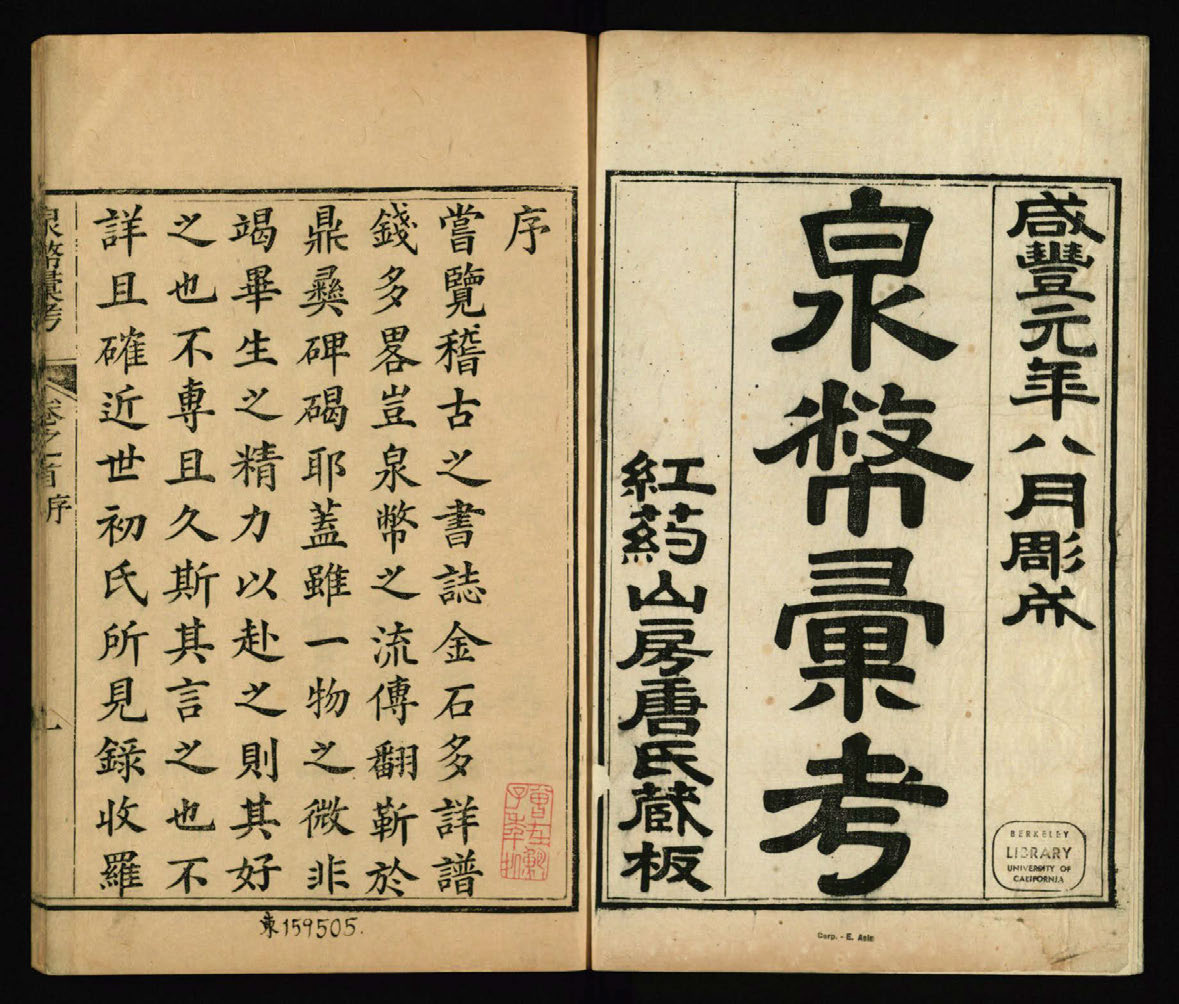 咸豐元年八月彫成
泉幣彙考
紅葯山房唐氏藏板
BERKELEY
LIBRARY
UNIVERSITY OF
CALIFORNIA
Corp. - E. Asia
序
嘗覽稽古之書誌金石多詳譜
錢多畧豈泉幣之流傳翻靳於
鼎彝碑碣耶蓋雖一物之微非
竭畢生之精力以赴之則其好
之也不專且久斯其言之也不
詳且確近世初氏所見錄收羅
泉幣彙考
卷之首序
一
東159505.